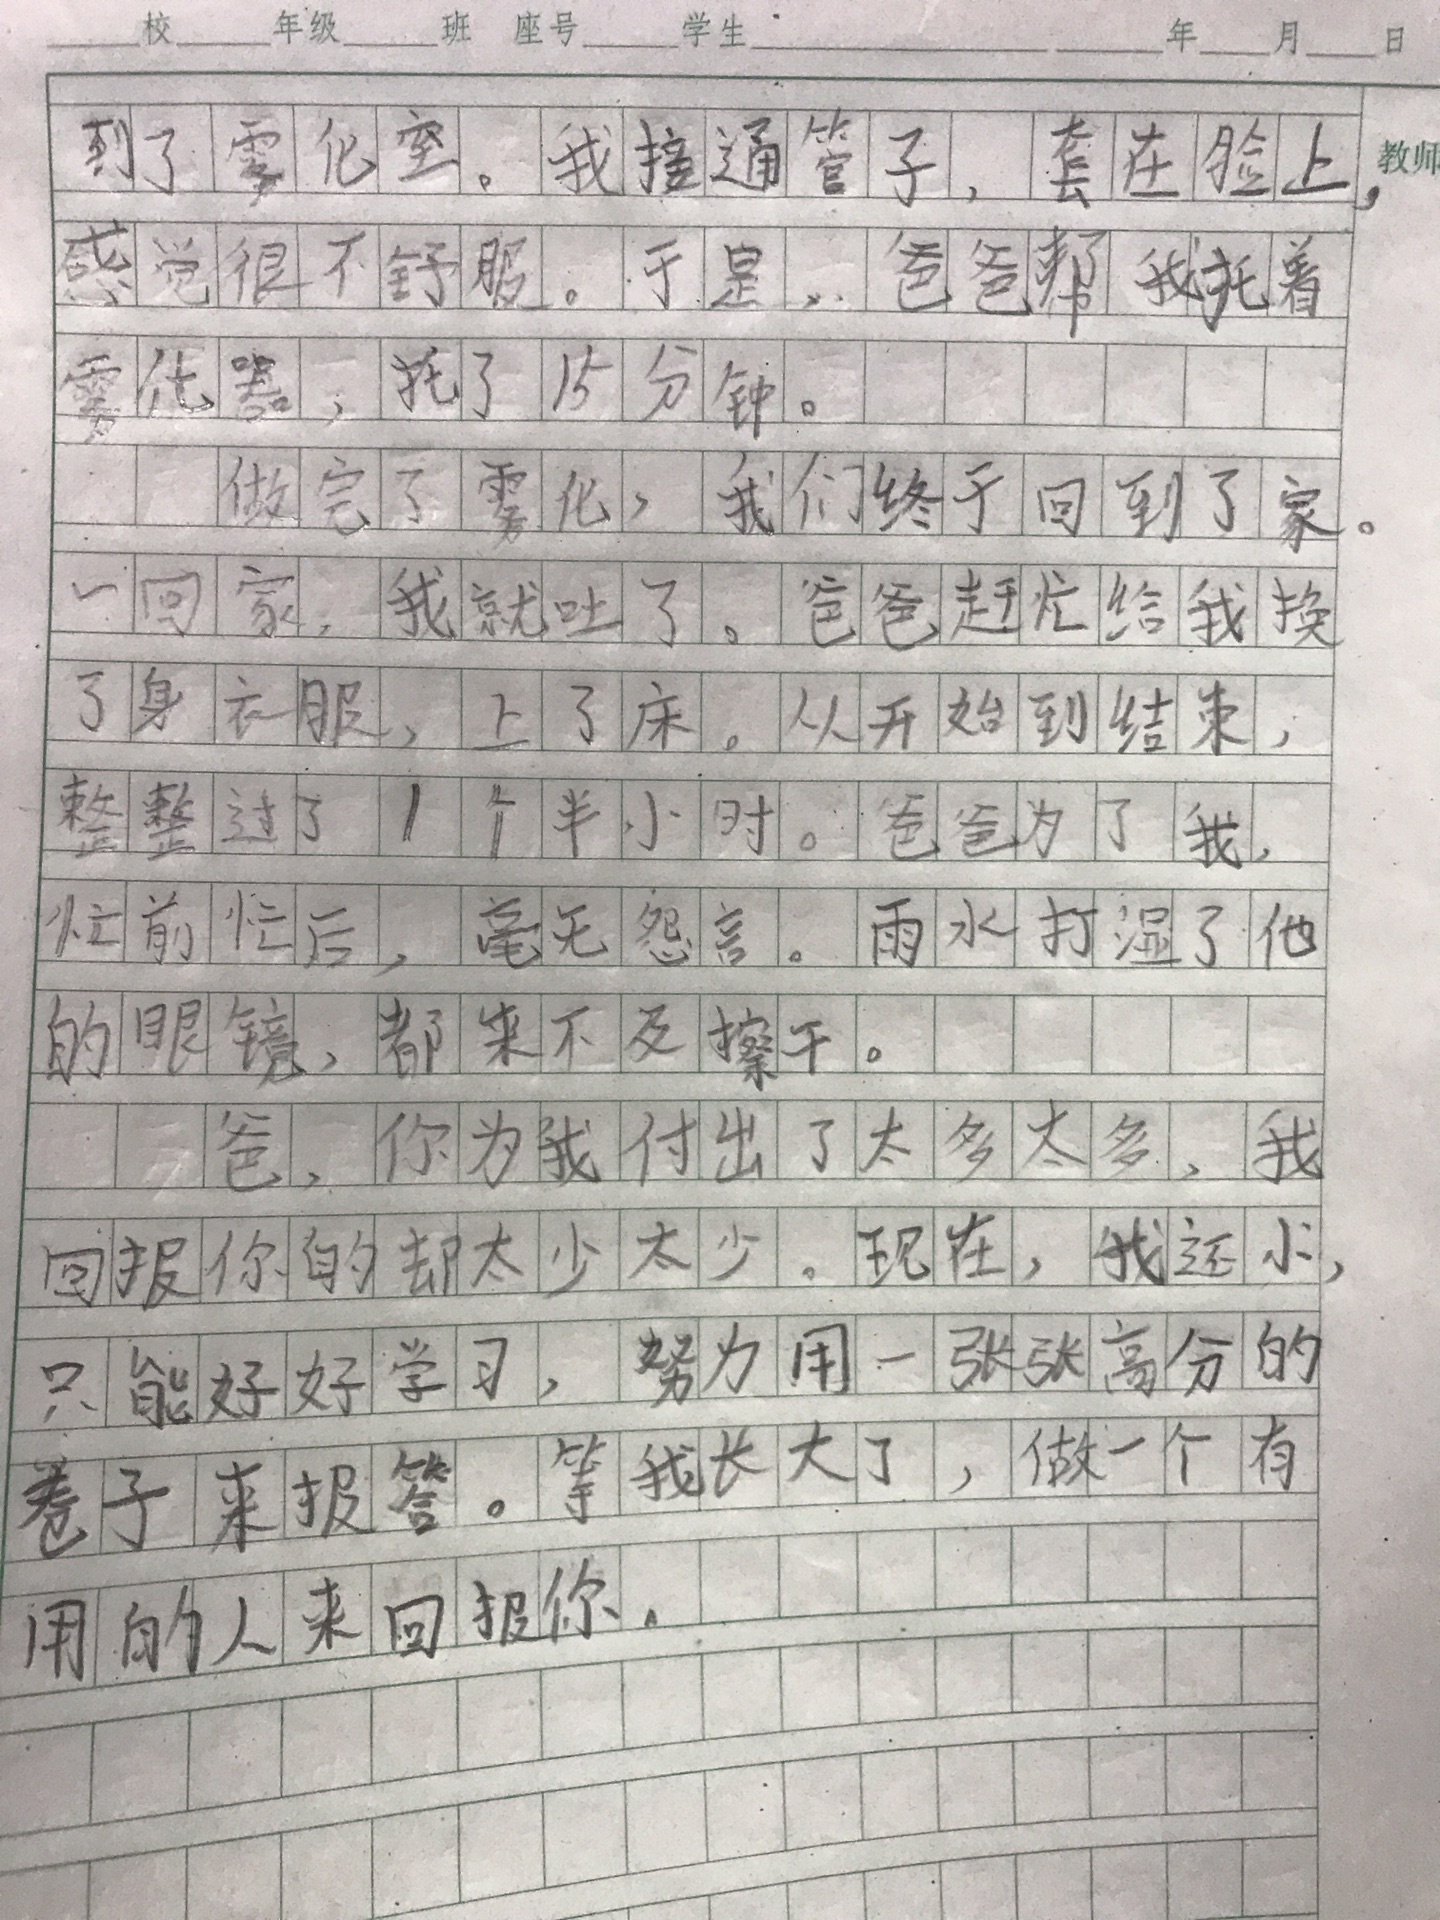 校 年级 班 座号 学生 年 月 日
教师
到了雾化室。我接通管子，套在脸上，
感觉很不舒服。于是，爸爸帮我托着
雾化器，托了15分钟。
做完了雾化，我们终于回到了家。
一回家，我就吐了。爸爸赶忙给我换
了身衣服，上了床。从开始到结束，
整整过了1个半小时。爸爸为了我，
忙前忙后，毫无怨言。雨水打湿了他
的眼镜，都来不及擦干。
爸，你为我付出了太多太多，我
回报你的却太少太少。现在，我还小，
只能好好学习，努力用一张张高分的
卷子来报答。等我长大了，做一个有
用的人来回报你。